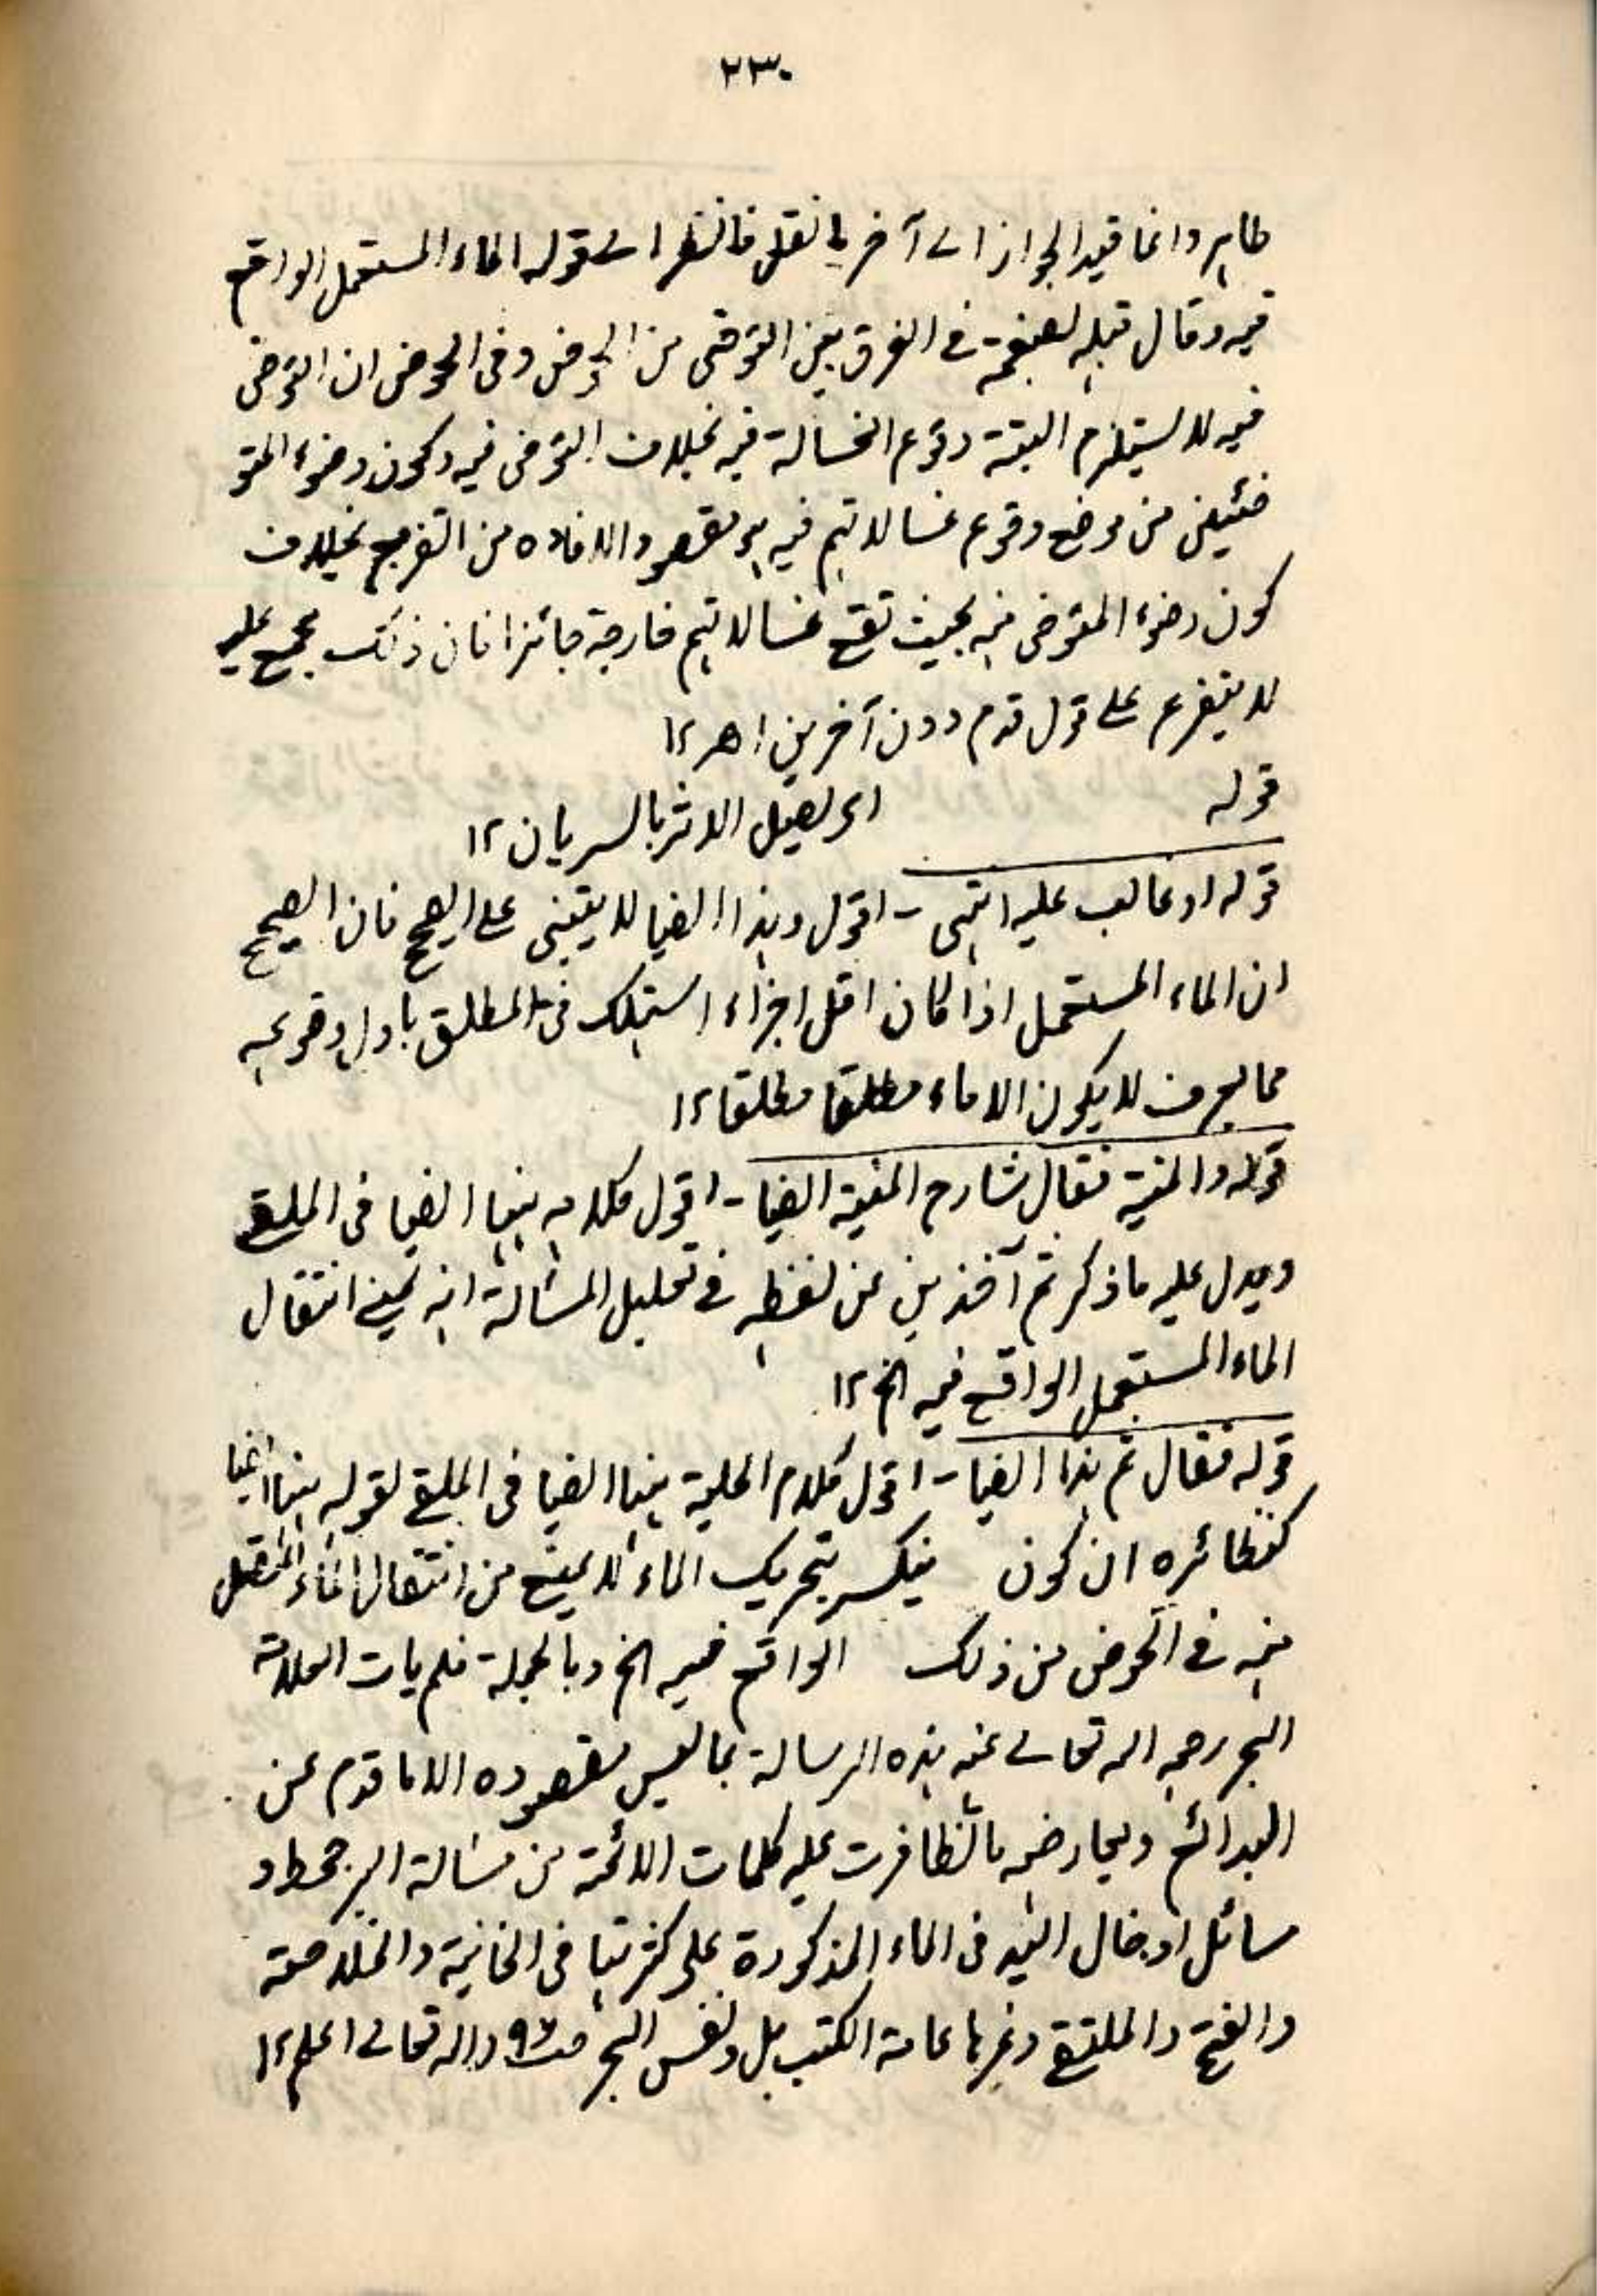 ٢٣٠
طاہر وانما قید الجواز الے آخر ما نقل فانظر الے قولہ الماء المستعمل الواقع
فیہ وقال قبلہ بصفحۃ فے الفرق بین التوضی من الحوض وفی الحوض ان التوضی
فیہ لا یستلزم البتۃ وقوع الغسالۃ فیہ بخلاف التوضی فیہ وکون وضوء المتو
ضئین من موضع وقوع غسالاتہم فیہ ہو مقصود الافادہ من التفریع بخلاف
کون وضوء المتوضی منہ بحیث تقع غسالاتہم خارجۃ جائزا فان ذلک مجمع علیہ
لا یتفرع علے قول قوم دون آخرین اھ ١٢
قولہ ای یصیل الاثر بالسریان ١٢
قولہ او غالب علیہ انتہی - اقول وہذا ایضا لا یبتنی علے الصحیح فان الصحیح
ان الماء المستعمل اذا کان اقل اجزاء استہلک فی المطلق باول وقوعہ
مما یعرف لا یکون الا ماء مطلقا مطلقا ١٢
قولہ والمنیۃ فقال شارح المنیۃ ایضا - اقول کلامہ ہنہا ایضا فی الملقے
ویدل علیہ ما ذکر ثم آخذین عن لفظہ فے تعلیل المسألۃ انہ یمنے انتقال
الماء المستعمل الواقع فیہ الخ ١٢
قولہ فقال ثم ہذا ایضا - اقول کلام الحلیۃ ہنہا ایضا فی الملقے لقولہ ہنہا ایضا
کنظائرہ ان کون ینکسر بتحریک الماء لا یمنع من انتقال الماء المنفصل
منہ فے الحوض من ذلک الواقع فیہ الخ وبالجملۃ فلم یات العلامۃ
البحر رحمہ اللہ تعالے عنہ ہذہ الرسالۃ بما لیس مقصودہ الا ما قدم عن
البدائع ویعارضہ ما تظافرت علیہ کلمات الائمۃ من مسألۃ البئر جحط و
مسائل ادخال الید فی الماء المذکورۃ علی کثرتہا فی الخانیۃ والخلاصۃ
والفتح والملتقے وغیرہا عامۃ الکتب بل ونفس البحر واللہ تعالے اعلم ١٢